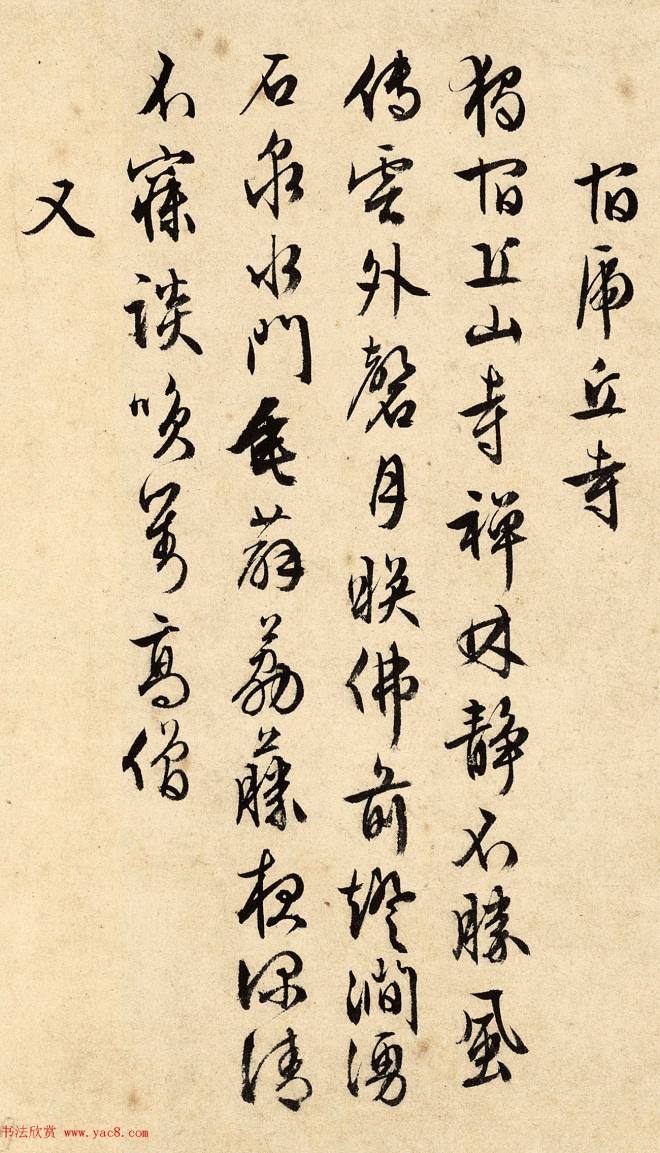 宿虎丘寺
獨宿丘山寺禪林靜不勝風
傳雲外磬月映佛前燈澗湧
石泉水門垂薜荔藤夜深清
不寐談咲高僧
又
书法欣赏 www.yac8.com